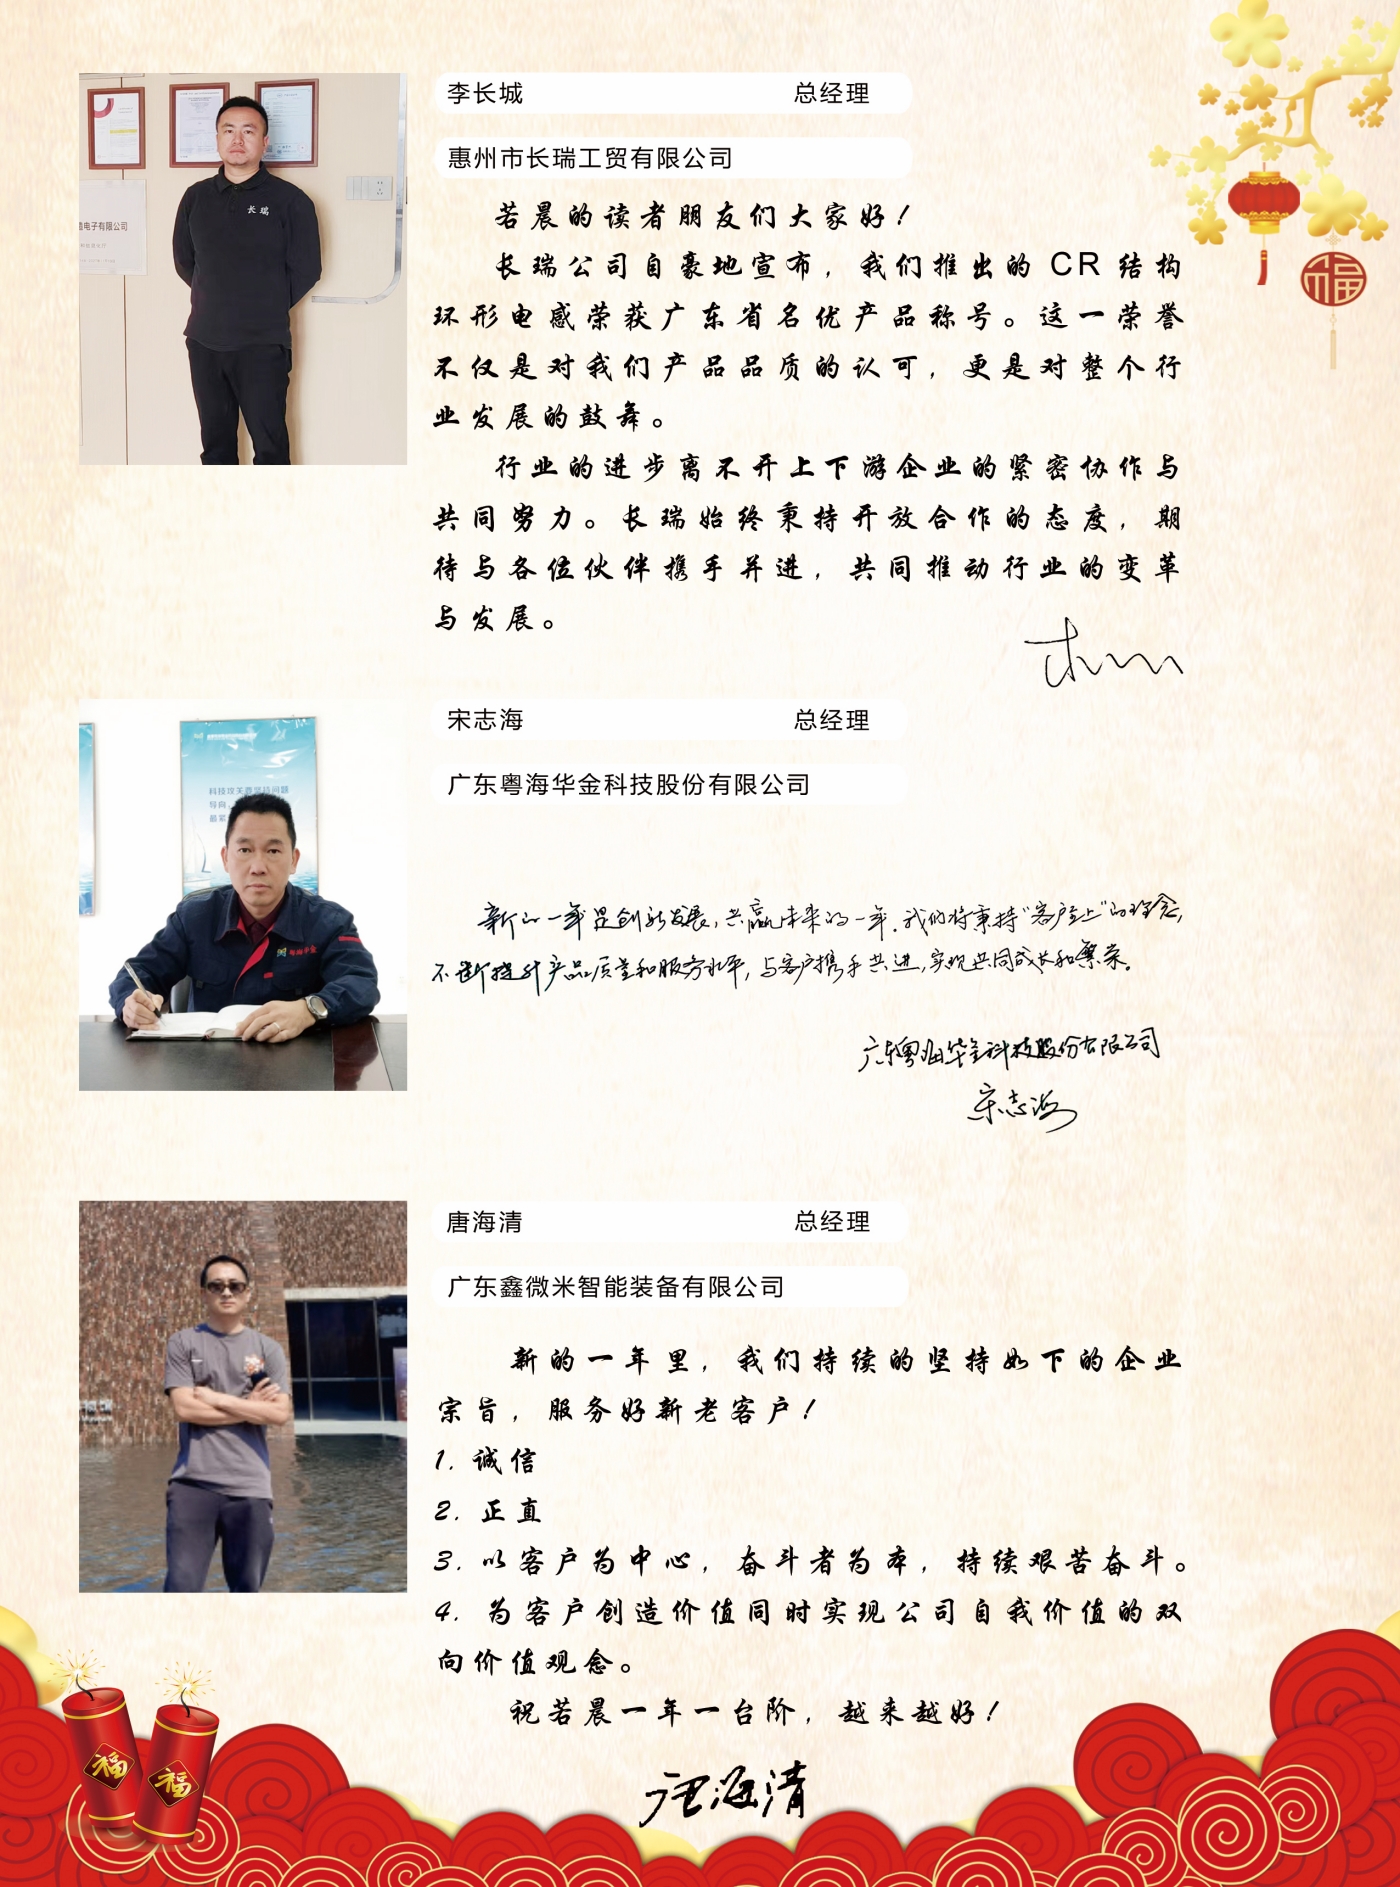 李长城 总经理
惠州市长瑞工贸有限公司
长瑞
造电子有限公司
若晨的读者朋友们大家好！
长瑞公司自豪地宣布，我们推出的 CR 结构
环形电感荣获广东省名优产品称号。这一荣誉
不仅是对我们产品品质的认可，更是对整个行
业发展的鼓舞。
行业的进步离不开上下游企业的紧密协作与
共同努力。长瑞始终秉持开放合作的态度，期
待与各位伙伴携手并进，共同推动行业的变革
与发展。
宋志海 总经理
广东粤海华金科技股份有限公司
科技攻关要坚持问题
导向，
最紧
粤海华金
新的一年是创新发展，共赢未来的一年。我们将秉持“客户至上”的理念，
不断提升产品质量和服务水平，与客户携手共进，实现共同成长和繁荣。
广东粤海华金科技股份有限公司
宋志海
唐海清 总经理
广东鑫微米智能装备有限公司
新的一年里，我们持续的坚持如下的企业
宗旨，服务好新老客户！
1. 诚信
2. 正直
3. 以客户为中心，奋斗者为本，持续艰苦奋斗。
4. 为客户创造价值同时实现公司自我价值的双
向价值观念。
祝若晨一年一台阶，越来越好！
唐海清
福
福
福